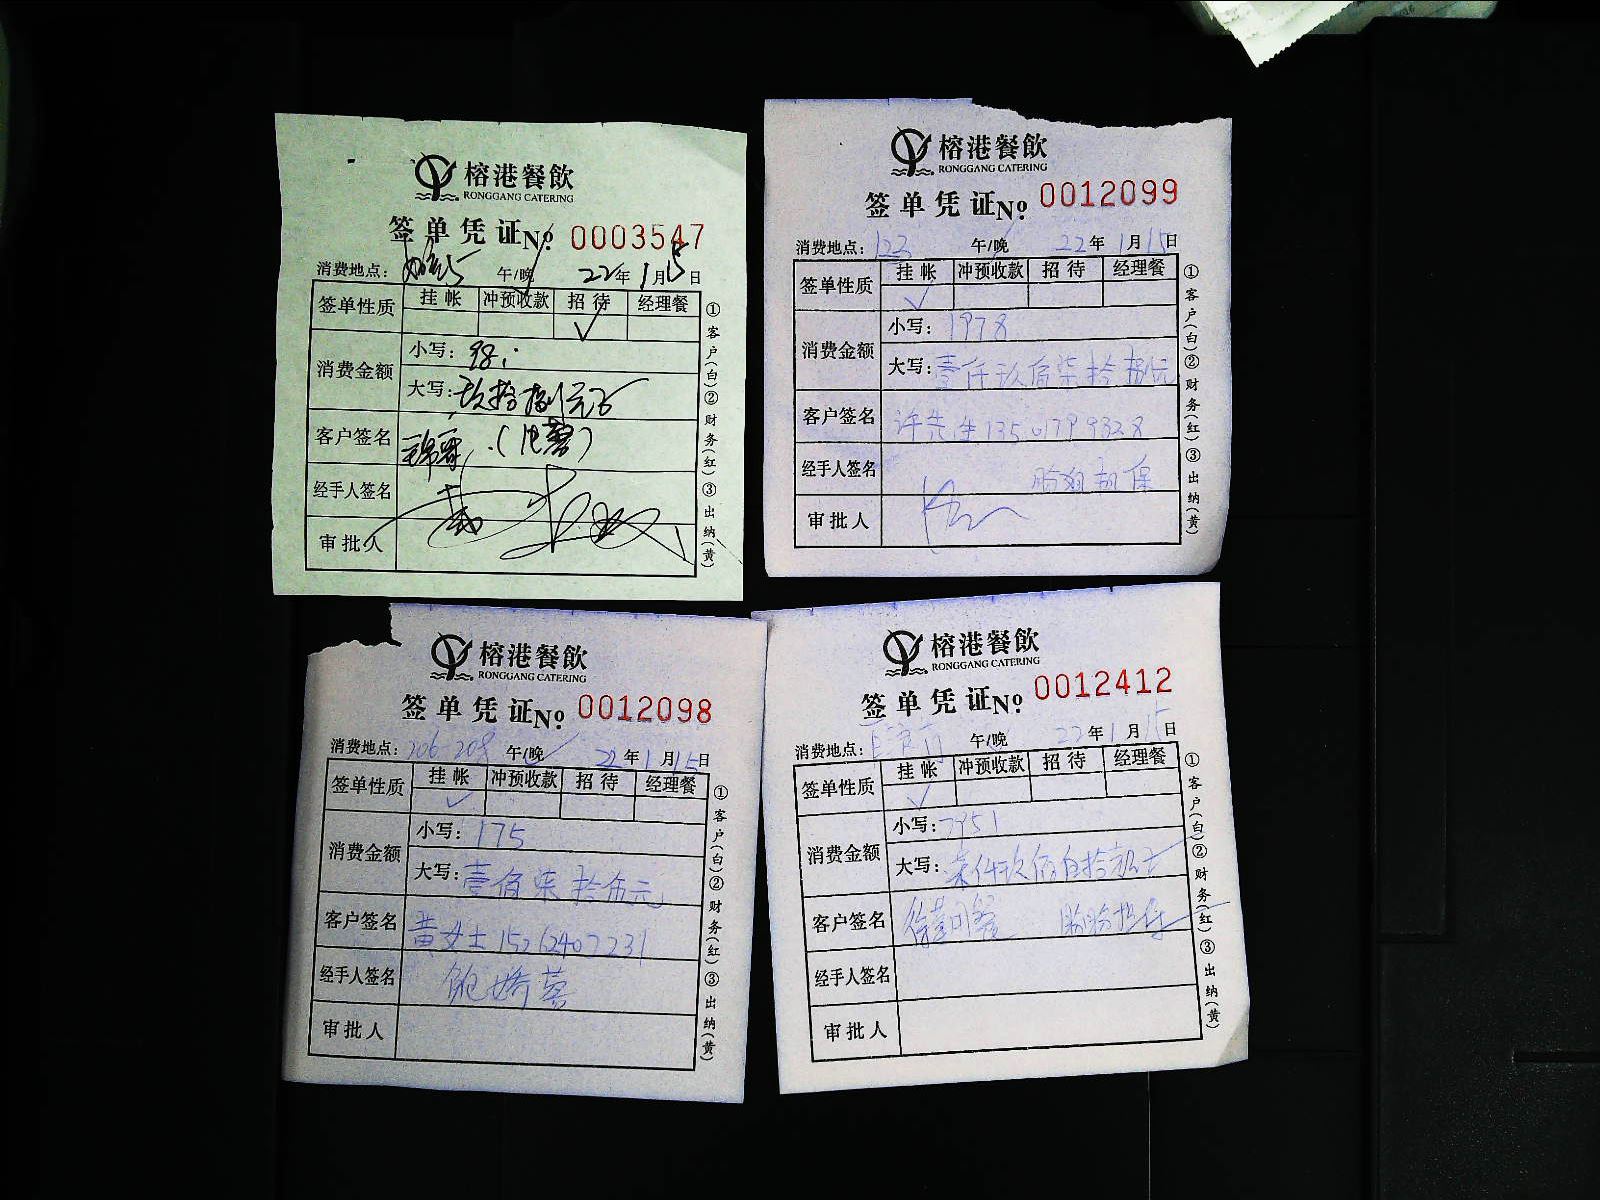 榕港餐飲
RONGGANG CATERING
签单凭证No 0003547
消费地点: 午/晚 22年1月15日
签单性质 挂帐 冲预收款 招待 经理餐
✓
消费金额 小写: 98
大写: 玖拾捌元
客户签名
经手人签名
审批人
①客户(白)②财务(红)③出纳(黄)
榕港餐飲
RONGGANG CATERING
签单凭证No 0012099
消费地点: 123 午/晚 22年1月15日
签单性质 挂帐 冲预收款 招待 经理餐
✓
消费金额 小写: 1978
大写: 壹仟玖佰柒拾捌元
客户签名 许先生
经手人签名
审批人
①客户(白)②财务(红)③出纳(黄)
榕港餐飲
RONGGANG CATERING
签单凭证No 0012098
消费地点: 206 208 午/晚 ✓ 22年1月15日
签单性质 挂帐 冲预收款 招待 经理餐
✓
消费金额 小写: 175
大写: 壹佰柒拾伍元
客户签名 黄女士 15262407231
经手人签名
审批人
①客户(白)②财务(红)③出纳(黄)
榕港餐飲
RONGGANG CATERING
签单凭证No 0012412
消费地点: 午/晚 22年1月15日
签单性质 挂帐 冲预收款 招待 经理餐
✓
消费金额 小写: 7951
大写:
客户签名
经手人签名
审批人
①客户(白)②财务(红)③出纳(黄)